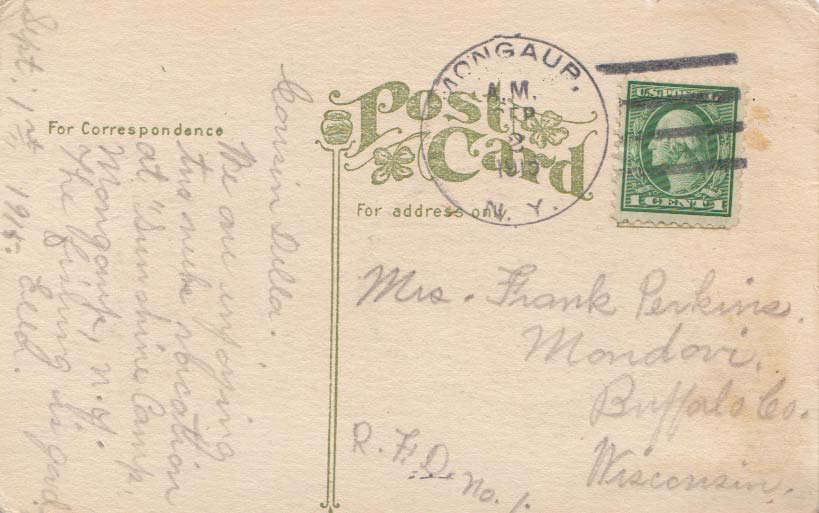 For Correspondence
Post
Card
For address only.
MONGAUP,
A.M.
SEP
2
N. Y.
U.S. POSTAGE
1 CENT 1
Cousin Della.
We are enjoying
two weeks vacation
at "Sunshine Camp."
Mongaup, N.Y.
The fishing is good
Sept. 1st 1915.
Mrs. Frank Perkins.
Mondovi.
Buffalo Co.
Wisconsin.
R. F. D. No. 1.